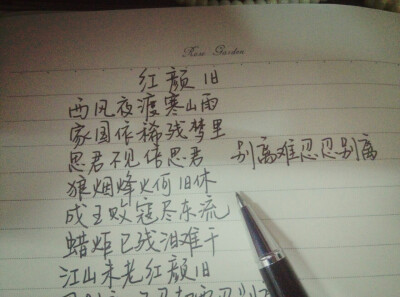 Rose Garden
红颜旧
西风夜渡寒山雨
家国依稀残梦里
思君不见倍思君 别离难忍忍别离
狼烟烽火何旧休
成王败寇尽东流
蜡炬已残泪难干
江山未老红颜旧